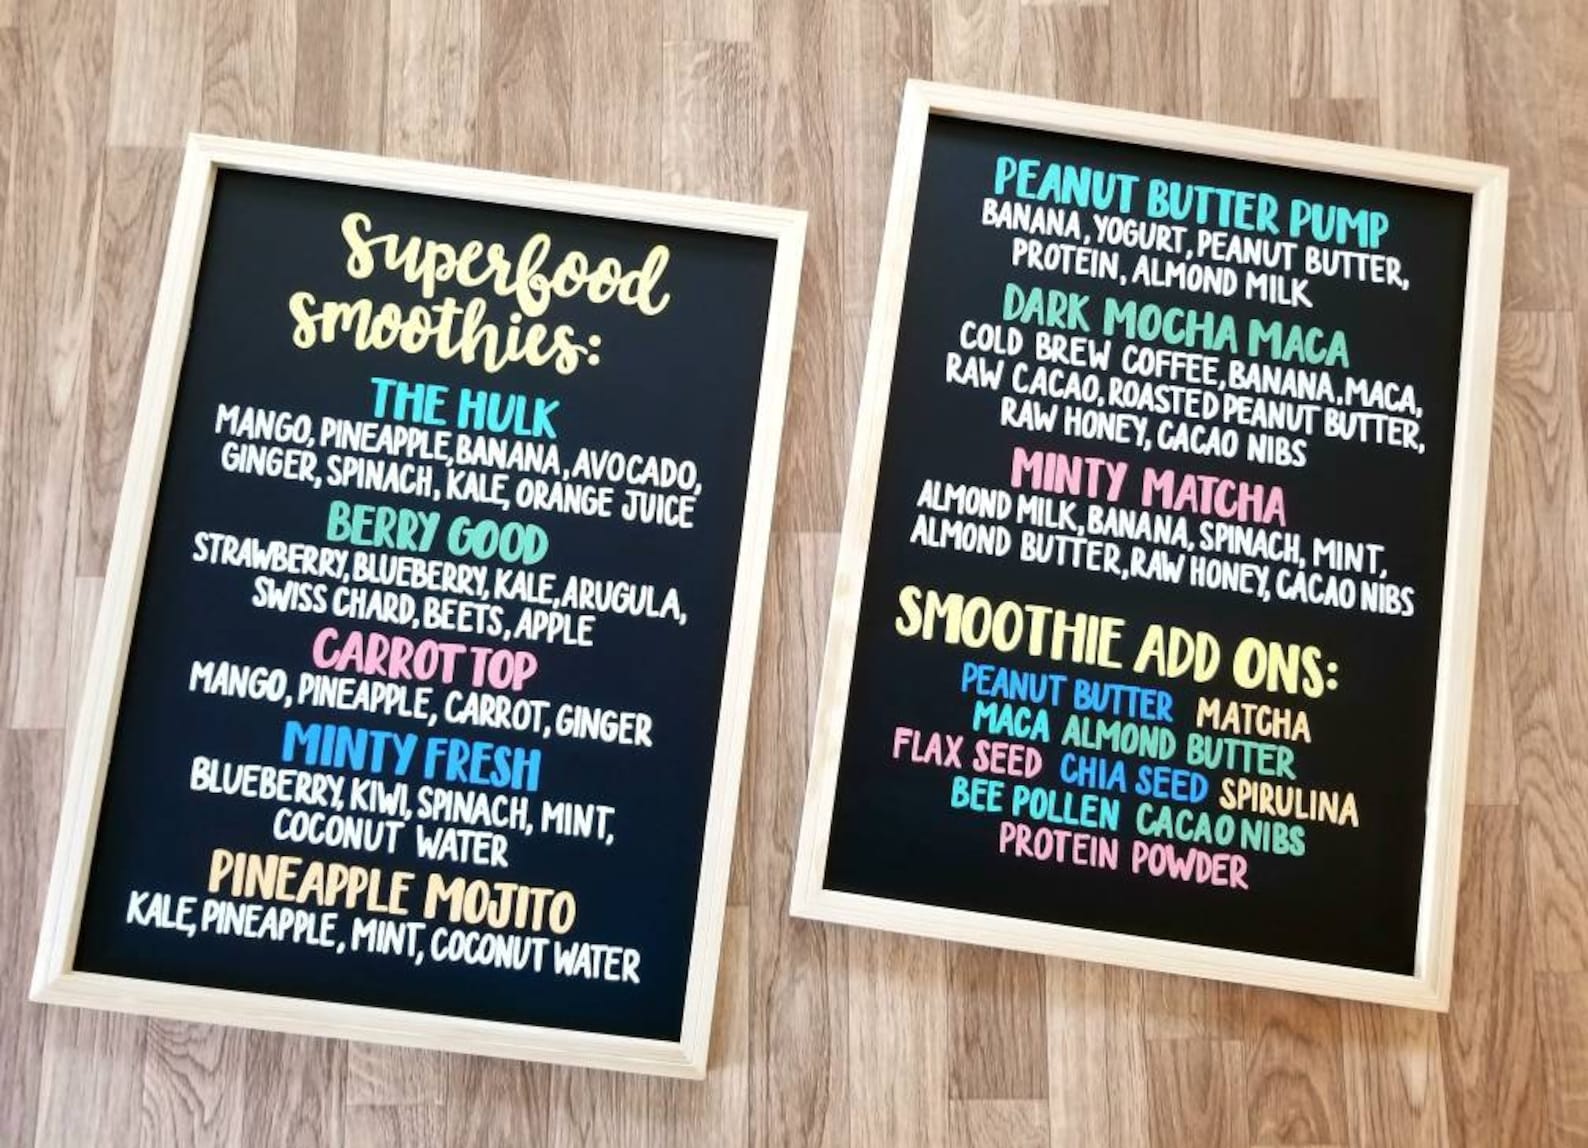 Superfood
smoothies:
THE HULK
MANGO, PINEAPPLE, BANANA, AVOCADO,
GINGER, SPINACH, KALE, ORANGE JUICE
BERRY GOOD
STRAWBERRY, BLUEBERRY, KALE, ARUGULA,
SWISS CHARD, BEETS, APPLE
CARROT TOP
MANGO, PINEAPPLE, CARROT, GINGER
MINTY FRESH
BLUEBERRY, KIWI, SPINACH, MINT,
COCONUT WATER
PINEAPPLE MOJITO
KALE, PINEAPPLE, MINT, COCONUT WATER
PEANUT BUTTER PUMP
BANANA, YOGURT, PEANUT BUTTER,
PROTEIN, ALMOND MILK
DARK MOCHA MACA
COLD BREW COFFEE, BANANA, MACA,
RAW CACAO, ROASTED PEANUT BUTTER,
RAW HONEY, CACAO NIBS
MINTY MATCHA
ALMOND MILK, BANANA, SPINACH, MINT,
ALMOND BUTTER, RAW HONEY, CACAO NIBS
SMOOTHIE ADD ONS:
PEANUT BUTTER MATCHA
MACA ALMOND BUTTER
FLAX SEED CHIA SEED SPIRULINA
BEE POLLEN CACAO NIBS
PROTEIN POWDER